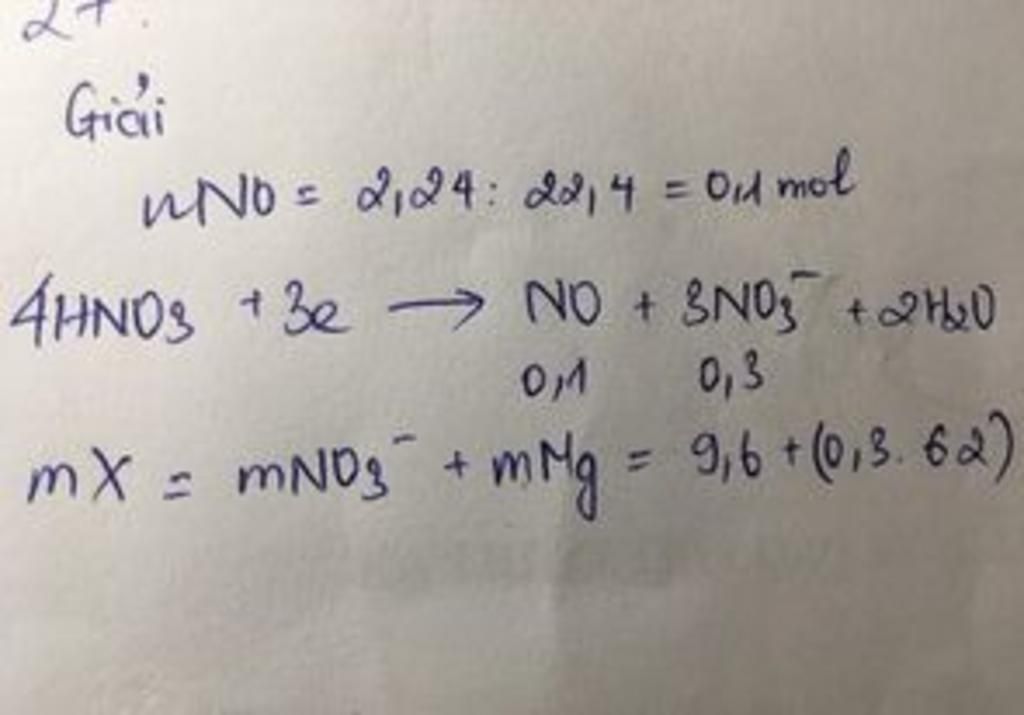 27.
Giải
nNO = 2,24 : 22,4 = 0,1 mol
4HNO3 + 3e → NO + 3NO3⁻ + 2H2O
0,1 0,3
mX = mNO3⁻ + mMg = 9,6 + (0,3. 62)